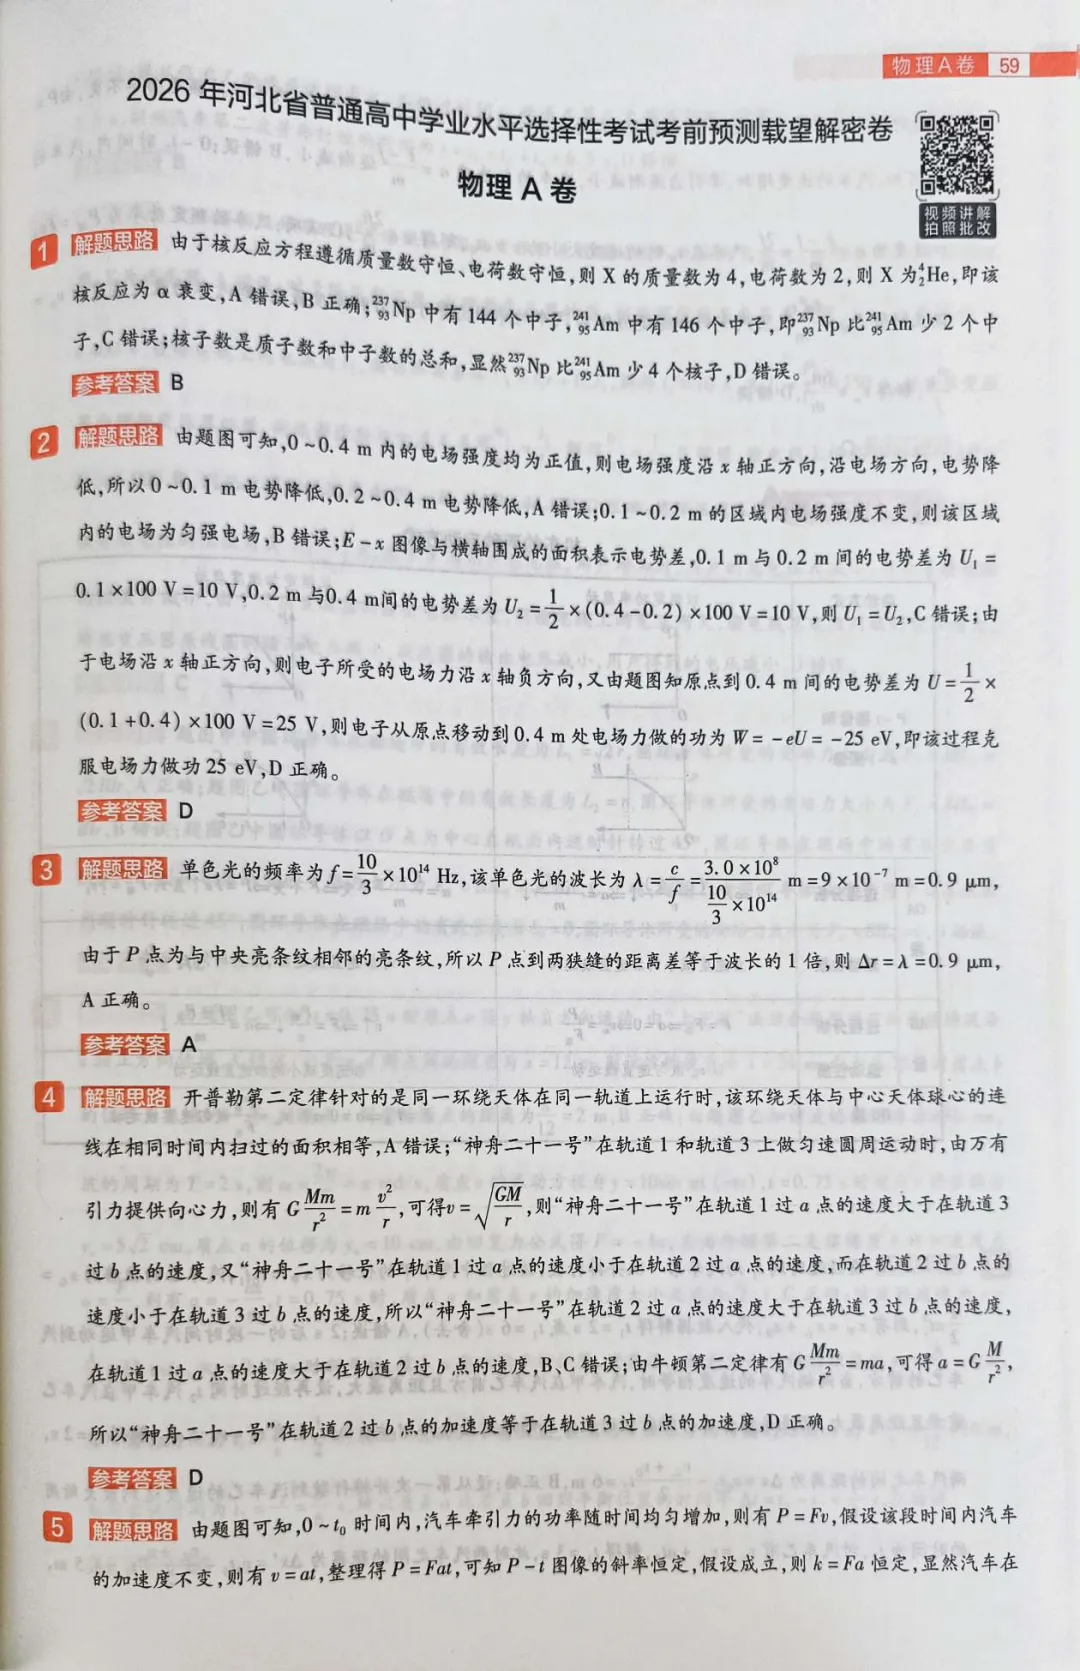 物理A卷 59
2026年河北省普通高中学业水平选择性考试考前预测载望解密卷
物理 A 卷
视频讲解
拍照批改
1 解题思路 由于核反应方程遵循质量数守恒、电荷数守恒,则 X 的质量数为 4,电荷数为 2,则 X 为⁴₂He,即该
核反应为 α 衰变,A 错误,B 正确;²³⁷₉₃Np 中有 144 个中子,²⁴¹₉₅Am 中有 146 个中子,即²³⁷₉₃Np 比²⁴¹₉₅Am 少 2 个中
子,C 错误;核子数是质子数和中子数的总和,显然²³⁷₉₃Np 比²⁴¹₉₅Am 少 4 个核子,D 错误。
参考答案 B
2 解题思路 由题图可知,0~0.4 m 内的电场强度均为正值,则电场强度沿 x 轴正方向,沿电场方向,电势降
低,所以 0~0.1 m 电势降低,0.2~0.4 m 电势降低,A 错误;0.1~0.2 m 的区域内电场强度不变,则该区域
内的电场为匀强电场,B 错误;E-x 图像与横轴围成的面积表示电势差,0.1 m 与 0.2 m 间的电势差为 U₁=
0.1×100 V=10 V,0.2 m 与0.4 m间的电势差为 U₂=1/2×(0.4-0.2)×100 V=10 V,则 U₁=U₂,C 错误;由
于电场沿 x 轴正方向,则电子所受的电场力沿 x 轴负方向,又由题图知原点到 0.4 m 间的电势差为 U=1/2×
(0.1+0.4)×100 V=25 V,则电子从原点移动到 0.4 m 处电场力做的功为 W=-eU=-25 eV,即该过程克
服电场力做功 25 eV,D 正确。
参考答案 D
3 解题思路 单色光的频率为 f=10/3×10¹⁴ Hz,该单色光的波长为 λ=c/f=3.0×10⁸/(10/3×10¹⁴) m=9×10⁻⁷ m=0.9 μm,
由于 P 点为与中央亮条纹相邻的亮条纹,所以 P 点到两狭缝的距离差等于波长的 1 倍,则 Δr=λ=0.9 μm,
A 正确。
参考答案 A
4 解题思路 开普勒第二定律针对的是同一环绕天体在同一轨道上运行时,该环绕天体与中心天体球心的连
线在相同时间内扫过的面积相等,A 错误;“神舟二十一号”在轨道 1 和轨道 3 上做匀速圆周运动时,由万有
引力提供向心力,则有 GMm/r²=mv²/r,可得v=√(GM/r),则“神舟二十一号”在轨道 1 过 a 点的速度大于在轨道 3
过 b 点的速度,又“神舟二十一号”在轨道 1 过 a 点的速度小于在轨道 2 过 a 点的速度,而在轨道 2 过 b 点的
速度小于在轨道 3 过 b 点的速度,所以“神舟二十一号”在轨道 2 过 a 点的速度大于在轨道 3 过 b 点的速度,
在轨道 1 过 a 点的速度大于在轨道 2 过 b 点的速度,B、C 错误;由牛顿第二定律有 GMm/r²=ma,可得 a=GM/r²,
所以“神舟二十一号”在轨道 2 过 b 点的加速度等于在轨道 3 过 b 点的加速度,D 正确。
参考答案 D
5 解题思路 由题图可知,0~t₀ 时间内,汽车牵引力的功率随时间均匀增加,则有 P=Fv,假设该段时间内汽车
的加速度不变,则有 v=at,整理得 P=Fat,可知 P-t 图像的斜率恒定,假设成立,则 k=Fa 恒定,显然汽车在